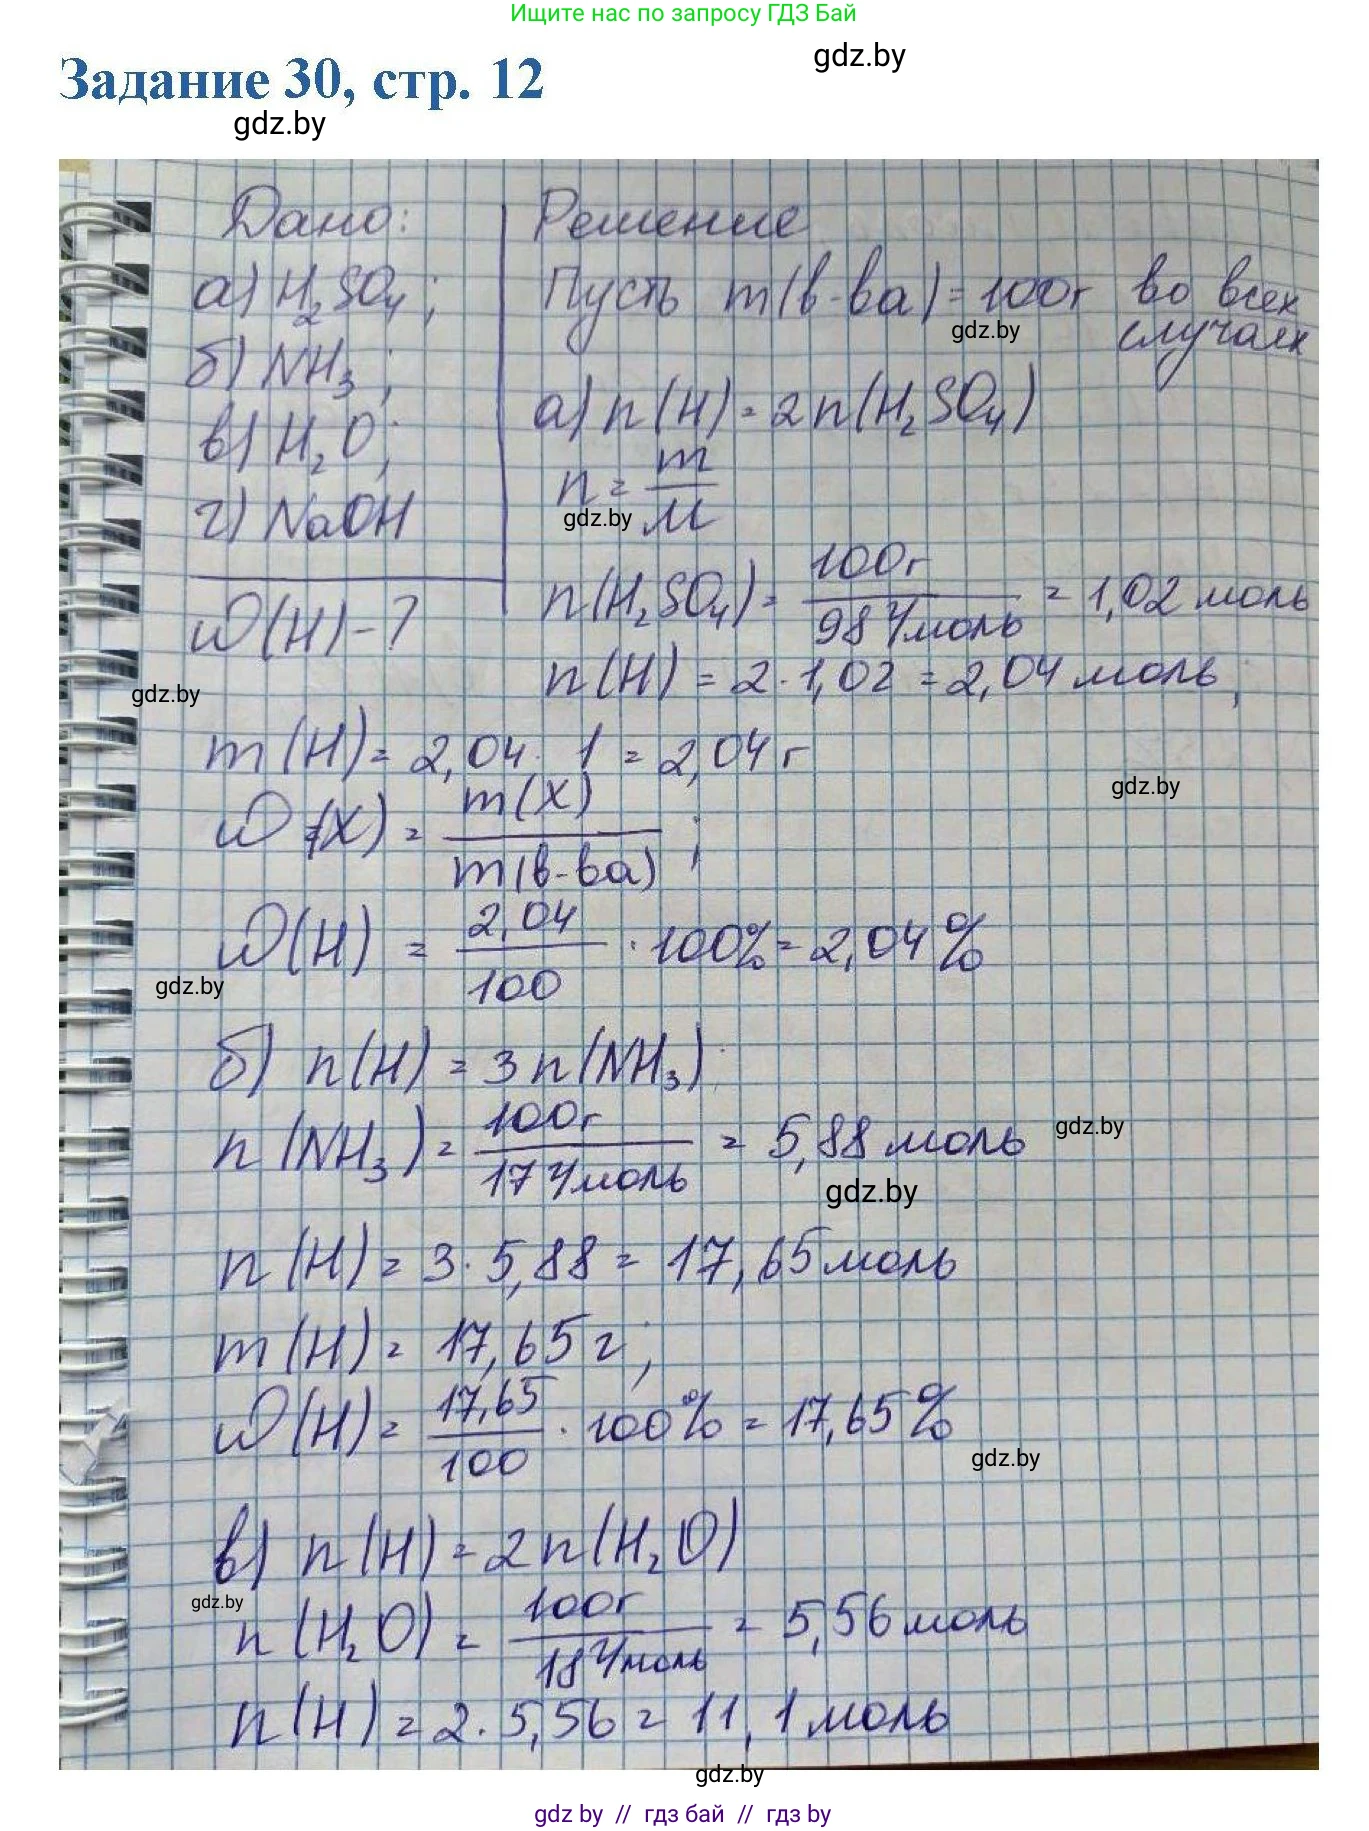 Ищите нас по запросу ГДЗ Бай
gdz.by
Задание 30, стр. 12
gdz.by
Дано:
а) H₂SO₄;
б) NH₃;
в) H₂O;
г) NaOH
W(H)-?
gdz.by
Решение
Пусть m(в-ва)=100г во всех
случаях
gdz.by
а) n(H)=2n(H₂SO₄)
n = m/M
gdz.by
n(H₂SO₄) = 100г/98 г/моль = 1,02 моль
n(H) = 2·1,02 = 2,04 моль;
m(H) = 2,04 · 1 = 2,04 г
gdz.by
W(X) = m(X)/m(в-ва);
W(H) = 2,04/100 · 100% = 2,04%
gdz.by
б) n(H) = 3n(NH₃);
n(NH₃) = 100г/17 г/моль = 5,88 моль
gdz.by
gdz.by
n(H) = 3·5,88 = 17,65 моль
m(H) = 17,65 г;
W(H) = 17,65/100 · 100% = 17,65%
gdz.by
в) n(H) = 2n(H₂O)
gdz.by
n(H₂O) = 100г/18 г/моль = 5,56 моль
n(H) = 2·5,56 = 11,1 моль
gdz.by
gdz by // гдз бай // gdz by